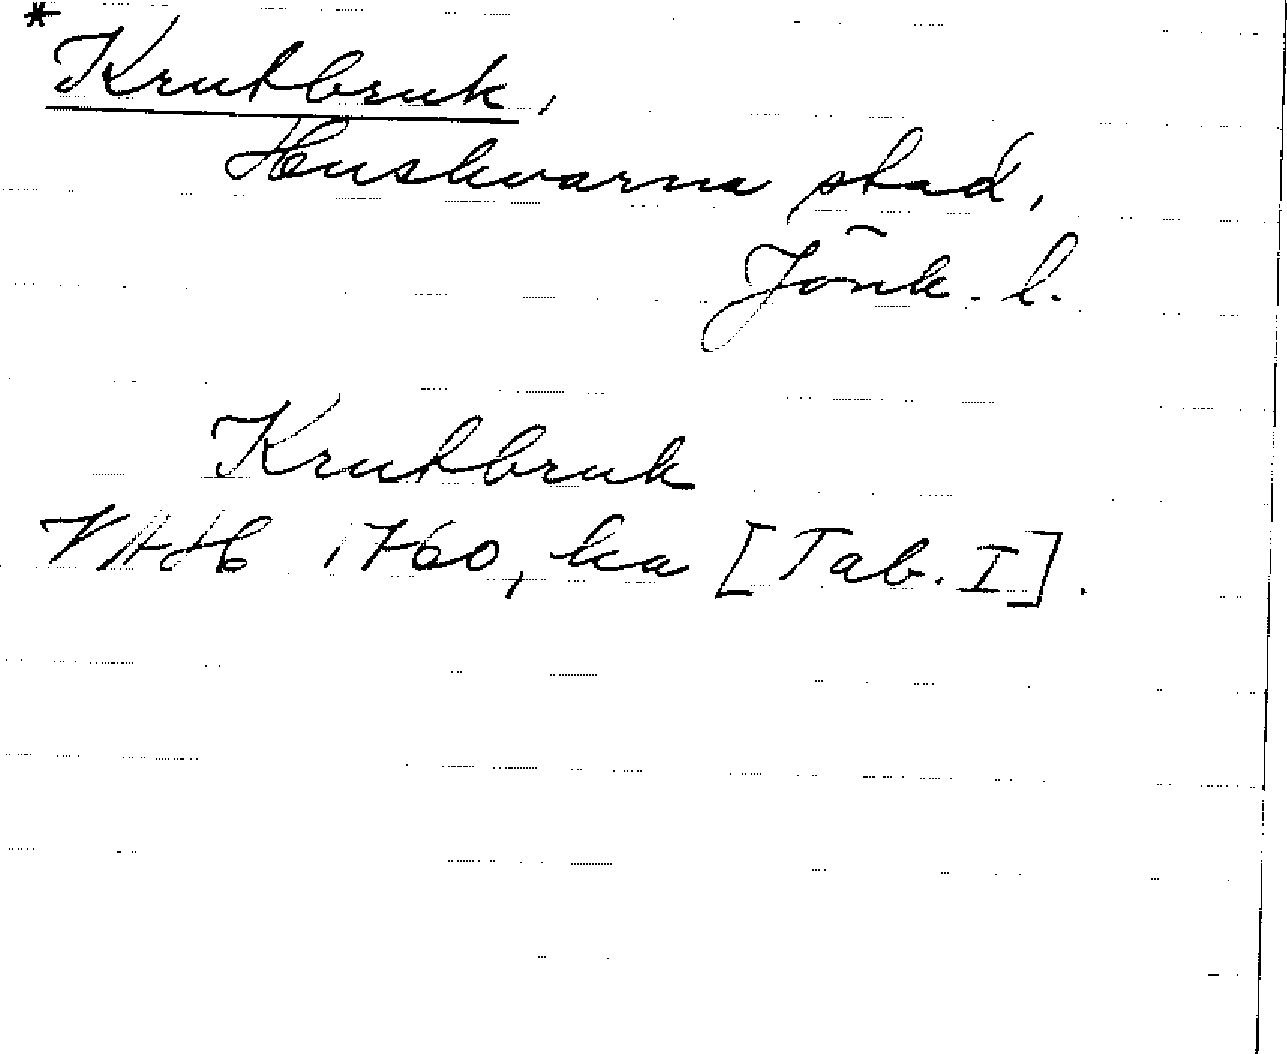 *
Krutbruk,
Huskvarna stad,
Jönk. l.
Krutbruk
VAH 1760, ka [Tab. I].